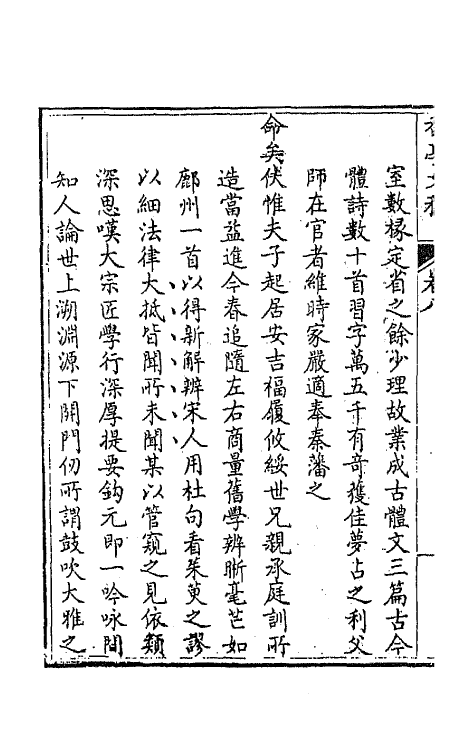 室數椽定省之餘少理故業成古體文三篇古今
體詩數十首習字萬五千有奇獲佳夢占之利父
師在官者維時家嚴適奉秦藩之
命矣伏惟夫子起居安吉福履攸綏世兄親承庭訓所
造當益進今春追隨左右商量舊學辨晰毫芒如
鄜州一首以得新解辨宋人用杜句看茱萸之謬
以細法律大抵皆聞所未聞某以管窺之見依類
深思嘆大宗匠學行深厚提要鈎元即一吟咏間
知人論世上溯淵源下開門仞所謂鼓吹大雅之